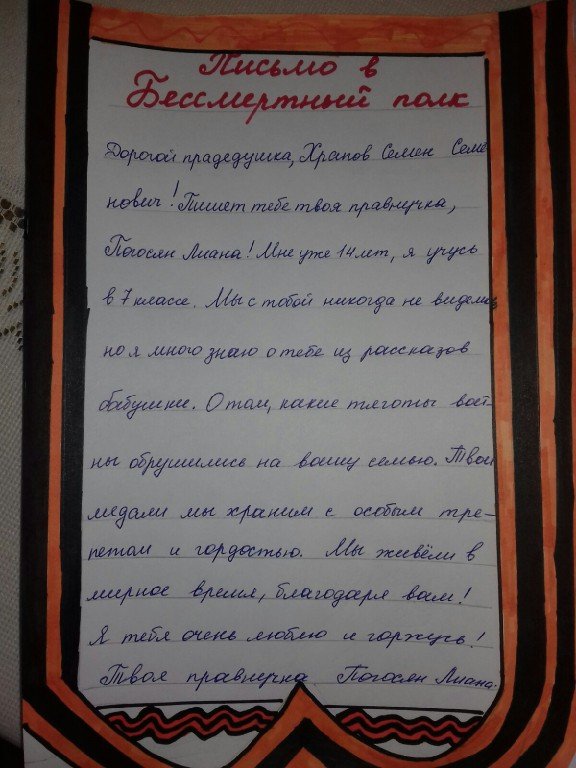 Письмо в
Бессмертный полк
Дорогой прадедушка, Храпов Семен Семё
нович! Пишет тебе твоя правнучка,
Погосян Лиана! Мне уже 14 лет, я учусь
в 7 классе. Мы с тобой никогда не виделись
но я много знаю о тебе из рассказов
бабушки. О том, какие тяготы вой-
ны обрушились на вашу семью. Твои
медали мы храним с особым тре-
петом и гордостью. Мы живём в
мирное время, благодаря вам!
Я тебя очень люблю и горжусь!
Твоя правнучка Погосян Лиана.